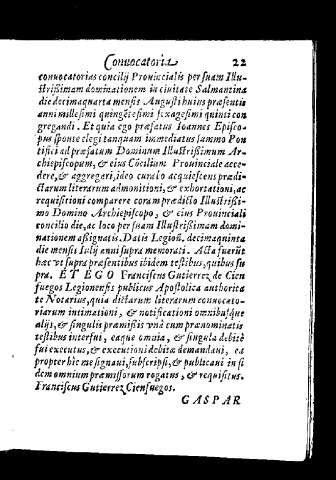 Conuocatoria 22
conuocatorias concilij Prouincialis per suam Illu-
strißimam dominationem in ciuitate Salmantina
die decimaquarta mensis Augusti huius præsentis
anni millesimi quingẽtesimi sexagesimi quinti con
gregandi. Et quia ego præfatus Ioannes Episco-
pus sponte elegi tanquam immediatus summo Pon
tifici ad præfatum Dominum Illustrißimum Ar-
chiepiscopum, & eius Cõcilium Prouinciale acce-
dere, & aggregeri, ideo curabo acquiescens prædi-
ctarum literarum admonitioni, & exhortationi, ac
requisitioni comparere coram prædicto Illustrißi-
mo Domino Archiepiscopo, & eius Prouinciali
concilio die, ac loco per suam Illustrißimam domi-
nationem aßignatis. Datis Legioñ. decimaquinta
die mensis Iulij anni supra memorati. Acta fuerũt
hæc vt supra præsentibus ibidem testibus, quibus su
pra. ET EGO Franciscus Gutierrez de Cien
fuegos Legionensis publicus Apostolica authorita
te Notarius, quia dictarum literarum conuocato-
riarum intimationi, & notificationi omnibusque
alijs, & singulis præmißis vnà cum prænominatis
testibus interfui, eaque omnia, & singula debitè
fui executus, & executioni debitæ demandaui, ea
propter hîc me signaui, subscripsi, & publicaui in fi
dem omnium præmissorum rogatus, & requisitus.
Franciscus Gutierrez Cienfuegos.
GASPAR